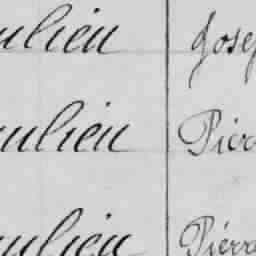 ulien Jose
ulien Pier
ulien Pierr